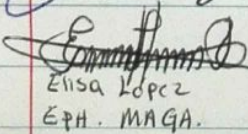 Elisa López
EPH. MAGA.